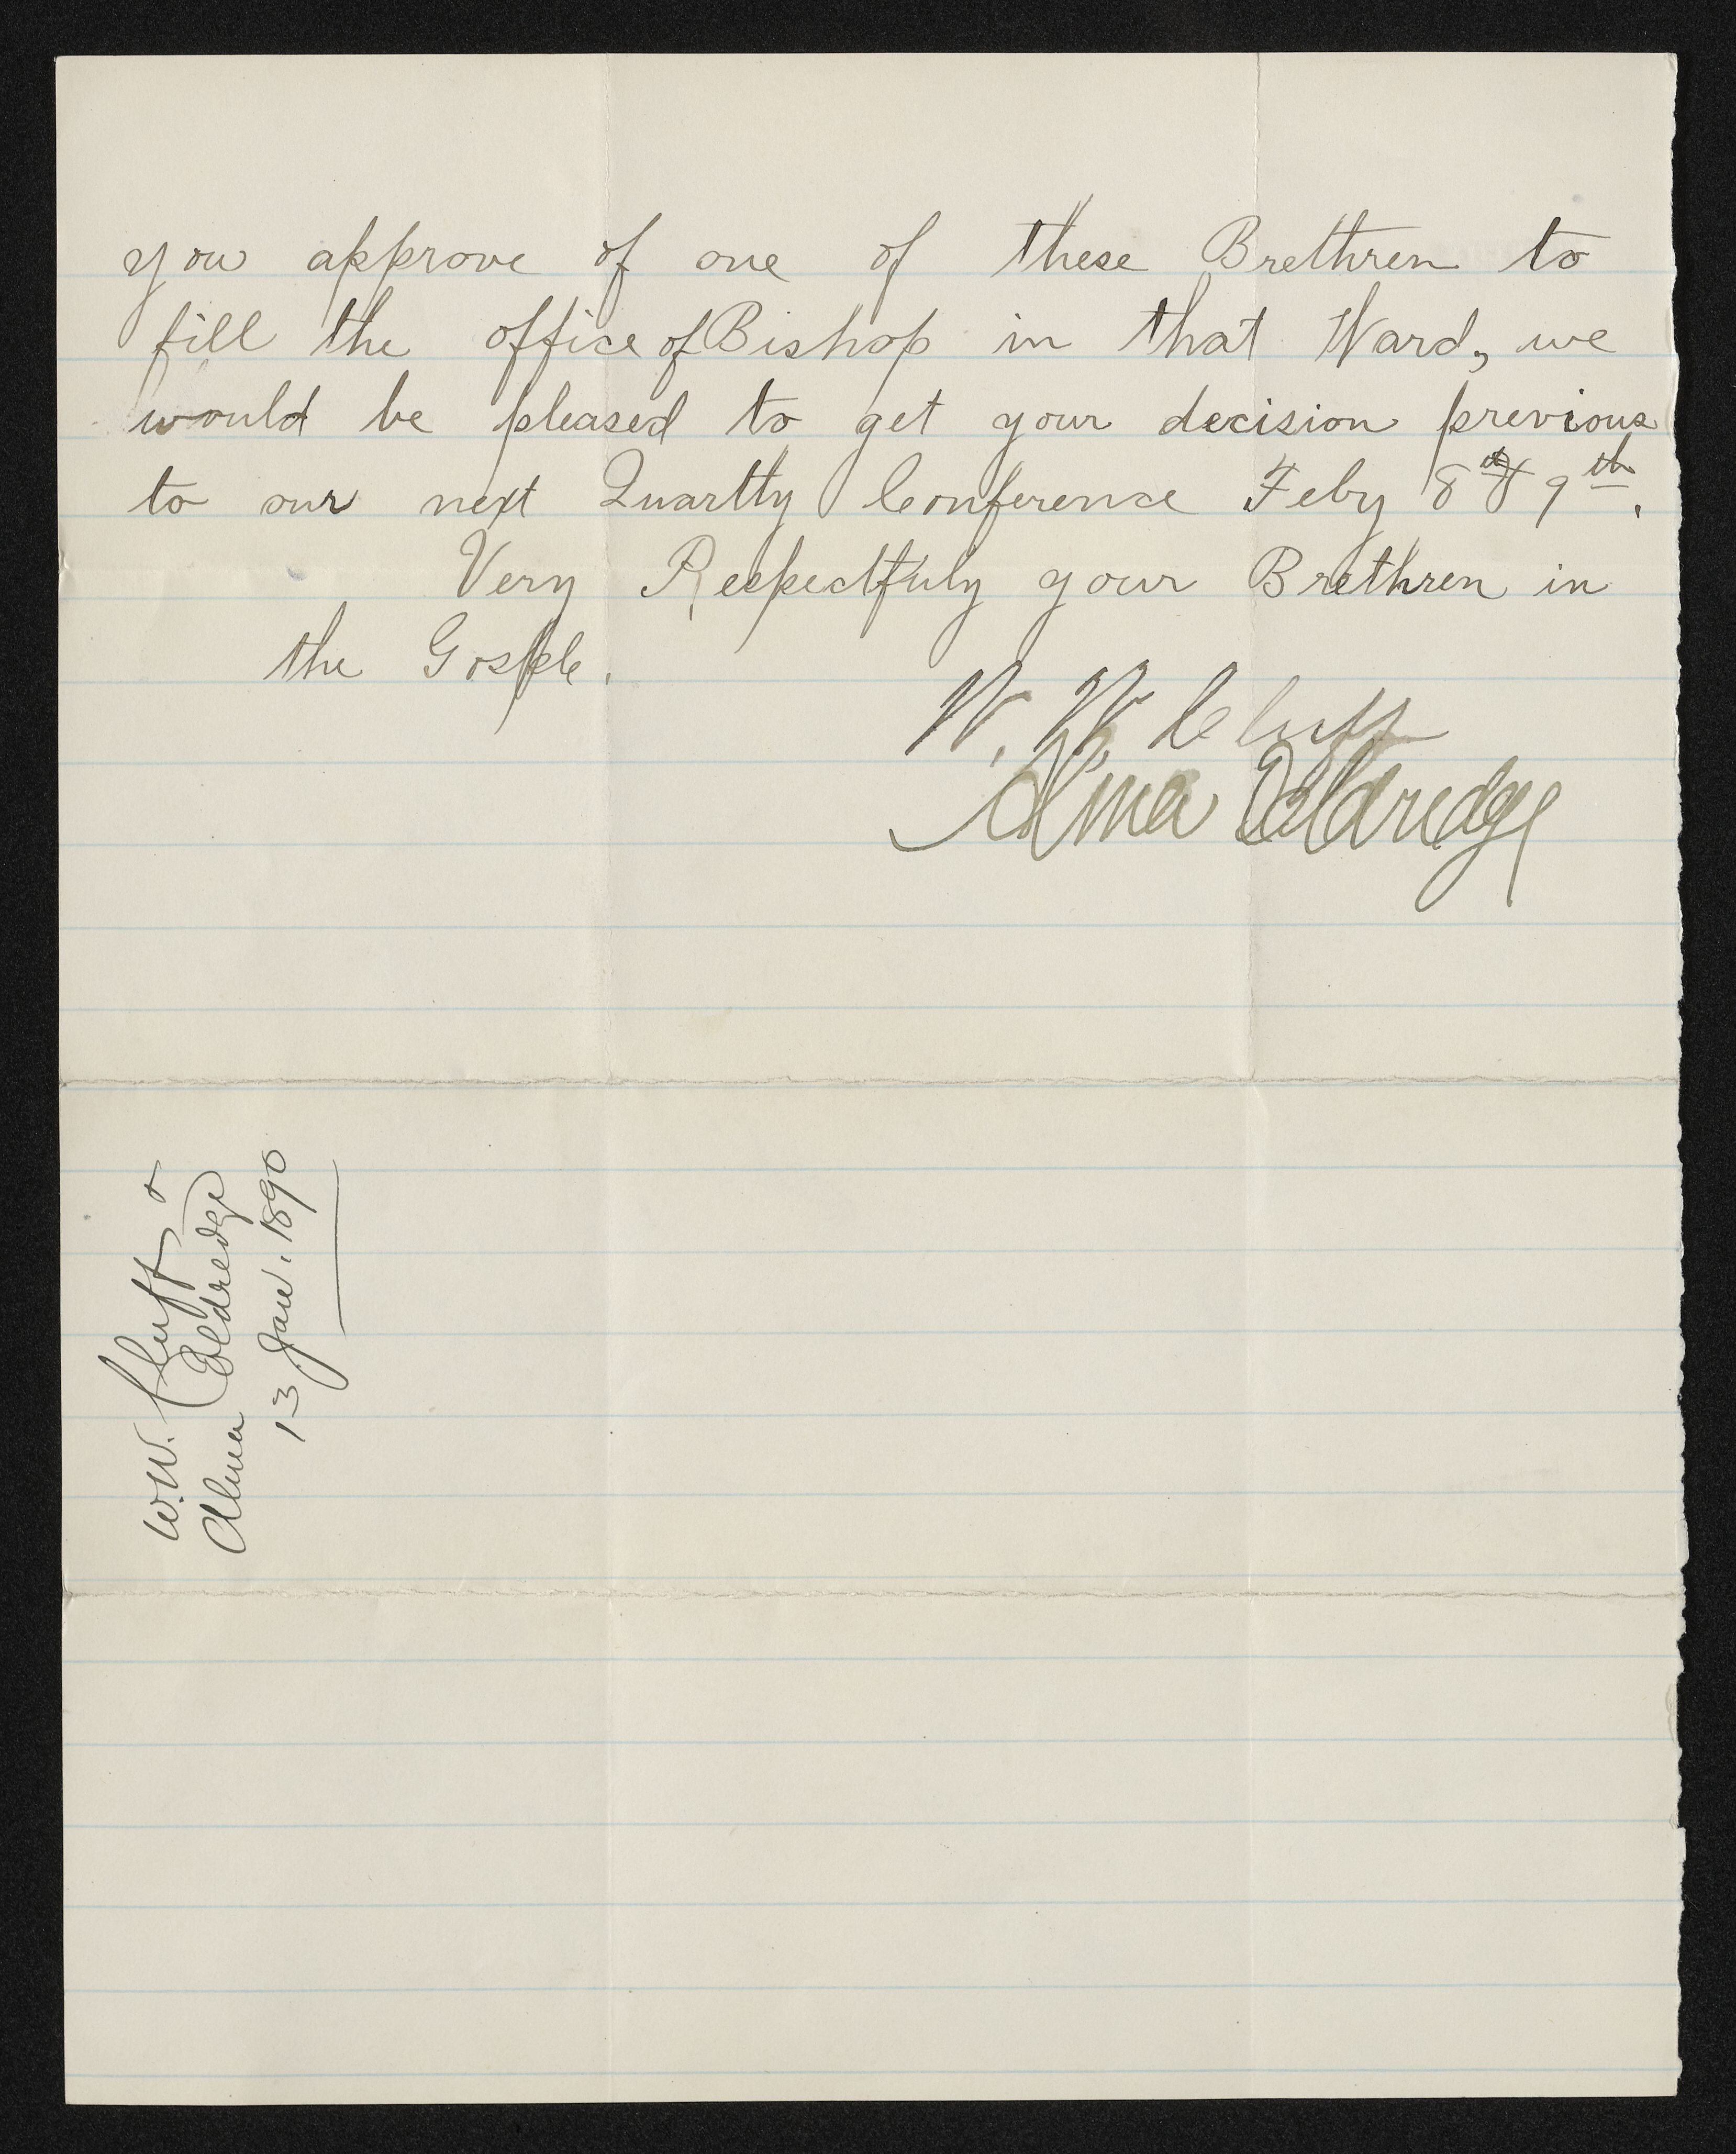 you approve of one of these Brethren to
fill the office of Bishop in that Ward, we
would be pleased to get your decision previous
to our next Quartly Conference Feby 8th & 9th.
Very Respectfuly your Brethren in
the Gosple.
W. W. Cluff
Alma Eldredge
W.W. Cluff &
Alma Eldredge
13 Jan. 1890